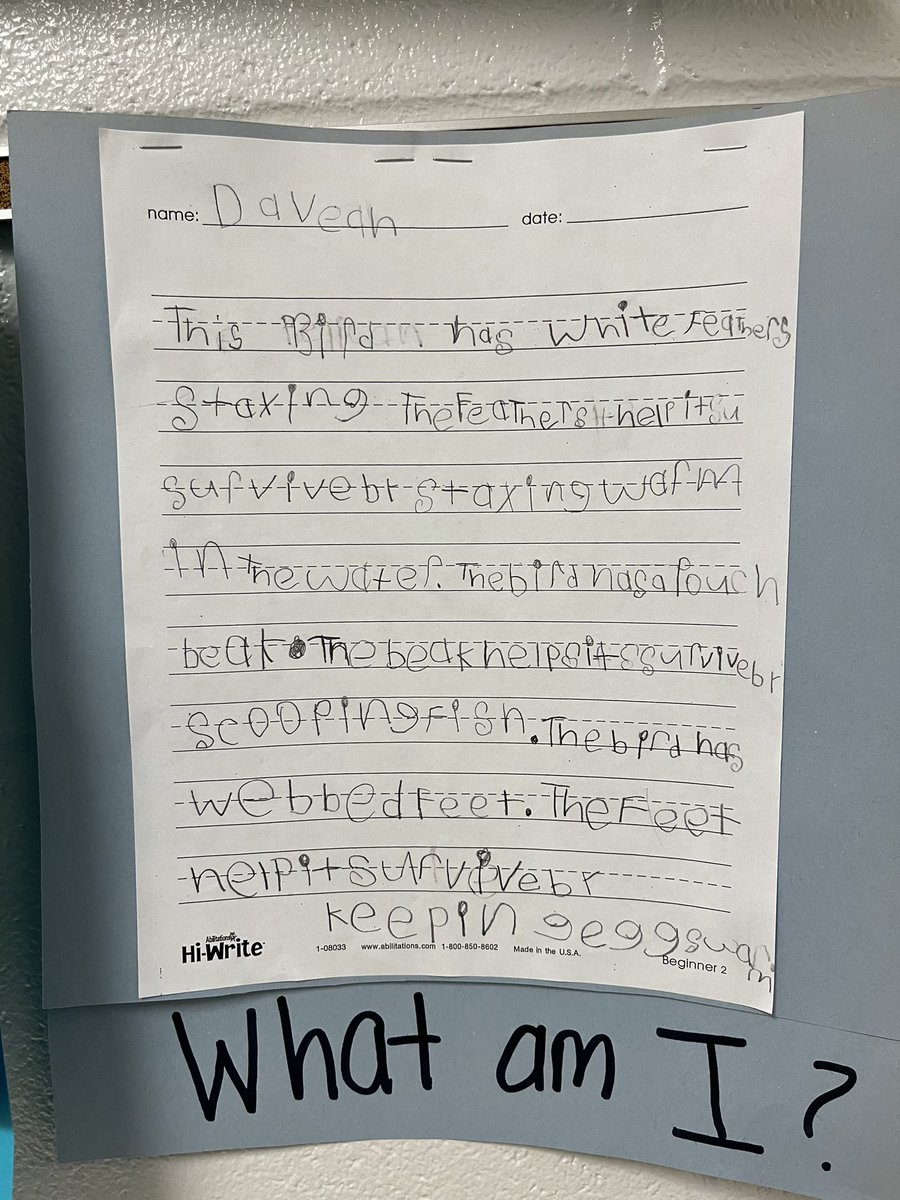 name: Davean date:
This Bird has white Feathers
staxing The Feathers help it su
survive br staxing warm
in the water. The bird has a Pouch
beak. The beak helps it s survive br
scooping fish. The bird has
webbed feet. The Feet
help it survive br
keeping eggs warm
Abilitations
Hi-Write 1-08033 www.abilitations.com 1-800-850-8602 Made in the U.S.A. Beginner 2
What am I?